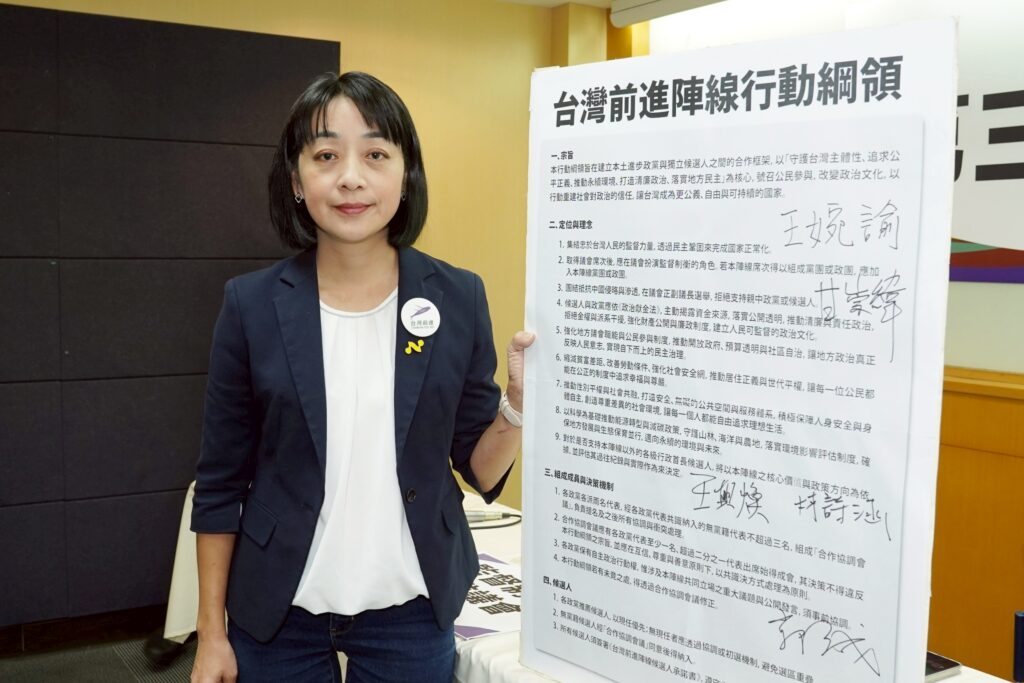 台灣前進陣線行動綱領
一、宗旨
本行動綱領旨在建立本土進步政黨與獨立候選人之間的合作框架，以「守護台灣主體性、追求公
平正義、推動永續環境、打造清廉政治、落實地方民主」為核心，號召公民參與，改變政治文化，以
行動重建社會對政治的信任，讓台灣成為更公義、自由與可持續的國家。
王婉諭
二、定位與理念
1. 集結忠於台灣人民的監督力量，透過民主鞏固來完成國家正常化。
2. 取得議會席次後，應在議會扮演監督制衡的角色。若本陣線席次得以組成黨團或政團，應加
入本陣線黨團或政團。
3. 團結抵抗中國侵略與滲透，在議會正副議長選舉，拒絕支持親中政黨或候選人
甘崇緯
4. 候選人與政黨應依《政治獻金法》，主動揭露資金來源，落實公開透明，推動清廉與責任政治，
拒絕金權與派系干擾，強化財產公開與廉政制度，建立人民可監督的政治文化。
5. 強化地方議會職能與公民參與制度，推動開放政府、預算透明與社區自治，讓地方政治真正
反映人民意志，實現自下而上的民主治理。
6. 縮減貧富差距，改善勞動條件，強化社會安全網，推動居住正義與世代平權，讓每一位公民都
能在公正的制度中追求幸福與尊嚴。
7. 推動性別平權與社會共融，打造安全、無礙的公共空間與服務體系，積極保障人身安全與身
體自主，創造尊重差異的社會環境，讓每一個人都能自由追求理想生活。
8. 以科學為基礎推動能源轉型與減碳政策，守護山林、海洋與農地，落實環境影響評估制度，確
保地方發展與生態保育並行，邁向永續的環境與未來。
9. 對於是否支持本陣線以外的各級行政首長候選人，將以本陣線之核心價值與政策方向為依
據，並評估其過往紀錄與實際作為來決定。
王興煥 林詩涵
三、組成成員與決策機制
1. 各政黨各派兩名代表，經各政黨代表共識納入的無黨籍代表不超過三名，組成「合作協調會
議」，負責提名及之後所有協調與衝突處理。
2. 合作協調會議應有各政黨代表至少一名，超過二分之一代表出席始得成會，其決策不得違反
本行動綱領之宗旨，並應在互信、尊重與善意原則下，以共識決方式處理為原則。
3. 各政黨保有自主政治行動權，惟涉及本陣線共同立場之重大議題與公開發言，須事前協調。
4. 本行動綱領若有未竟之處，得透過合作協調會議修正。
四、候選人
1. 各政黨推薦候選人，以現任優先；無現任者應透過協調或初選機制，避免選區重疊
2. 無黨籍候選人經「合作協調會議」同意後得納入。
3. 所有候選人須簽署《台灣前進陣線候選人承諾書》，遵守
台灣前進
第三